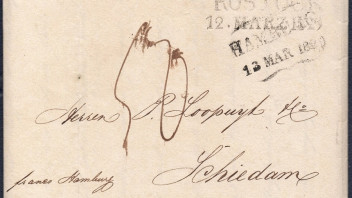 ROSTOCK
12. MARZ
HAMBURG
13 MAR 18
Herren P. Loopuyt & Co
Schiedam
franco Hamburg